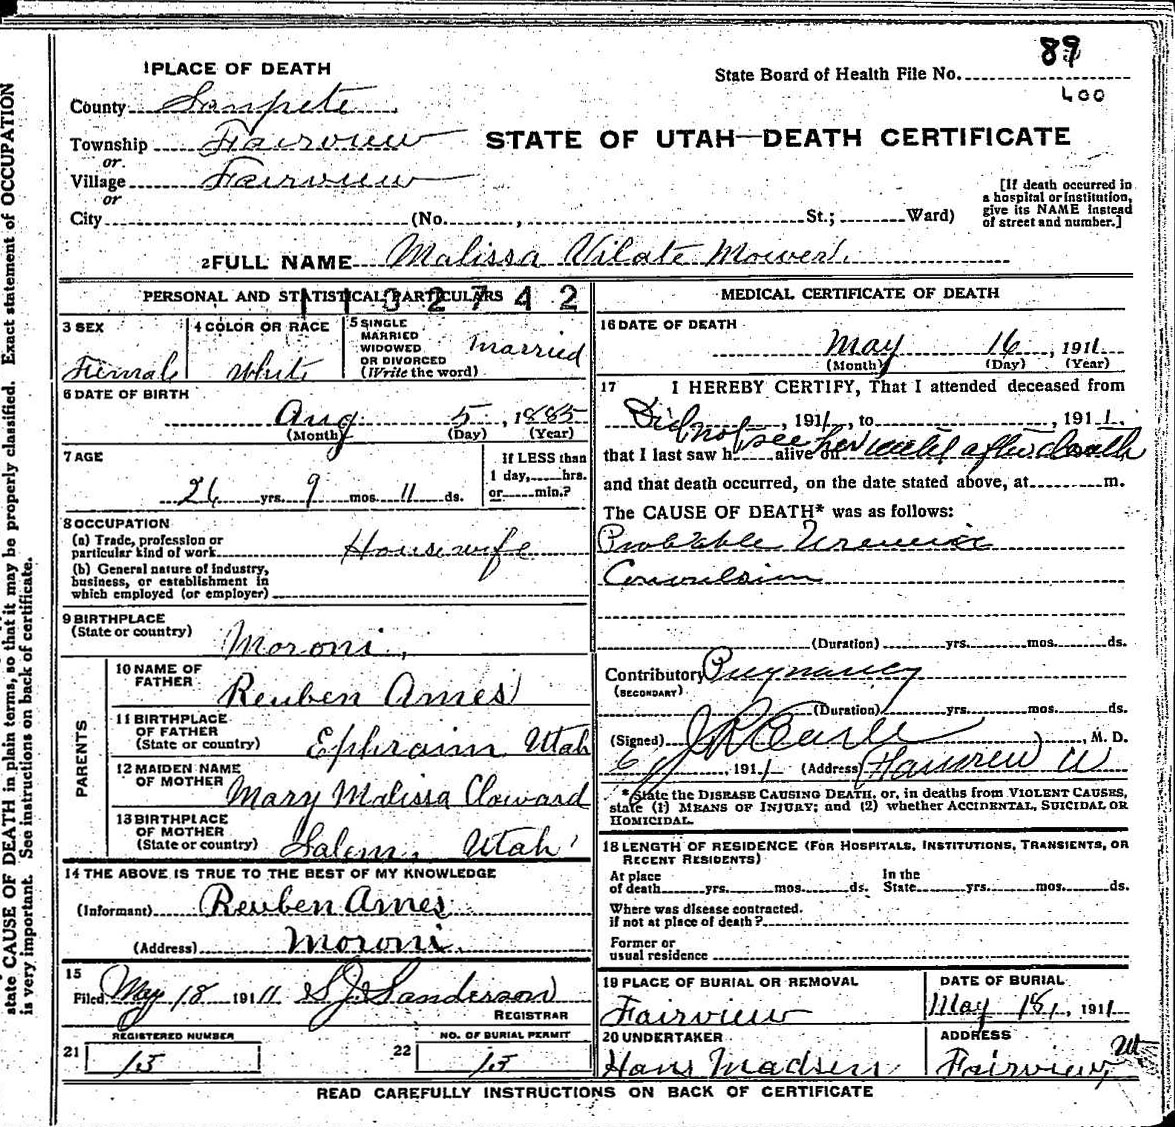 89
State Board of Health File No.
400
1 PLACE OF DEATH
County Sanpete
Township Fairview
or
Village Fairview
or
STATE OF UTAH—DEATH CERTIFICATE
City (No. , St.; Ward)
[If death occurred in
a hospital or institution,
give its NAME instead
of street and number.]
2 FULL NAME Malissa Vilate Mower
PERSONAL AND STATISTICAL PARTICULARS
1132742
3 SEX
Female
4 COLOR OR RACE
White
5 SINGLE
MARRIED
WIDOWED
OR DIVORCED
(Write the word)
Married
6 DATE OF BIRTH
Aug 5, 1885
(Month) (Day) (Year)
7 AGE
26 yrs. 9 mos. 11 ds.
If LESS than
1 day, hrs.
or min.?
8 OCCUPATION
(a) Trade, profession or
particular kind of work Housewife
(b) General nature of industry,
business, or establishment in
which employed (or employer)
9 BIRTHPLACE
(State or country) Moroni,
PARENTS
10 NAME OF
FATHER Reuben Ames
11 BIRTHPLACE
OF FATHER
(State or country) Ephraim Utah
12 MAIDEN NAME
OF MOTHER Mary Malissa Cloward
13 BIRTHPLACE
OF MOTHER
(State or country) Salem, Utah
14 THE ABOVE IS TRUE TO THE BEST OF MY KNOWLEDGE
(Informant) Reuben Ames
(Address) Moroni.
15
Filed May 18 1911 S J Sanderson
REGISTRAR
REGISTERED NUMBER
21 15
NO. OF BURIAL PERMIT
22 15
MEDICAL CERTIFICATE OF DEATH
16 DATE OF DEATH
May 16, 1911.
(Month) (Day) (Year)
17 I HEREBY CERTIFY, That I attended deceased from
, 1911, to , 1911.
Did not see her until after death
that I last saw h alive on
and that death occurred, on the date stated above, at m.
The CAUSE OF DEATH* was as follows:
Probable Uremic
Convulsion
(Duration) yrs. mos. ds.
Contributory Pregnancy
(SECONDARY)
(Duration) yrs. mos. ds.
(Signed) , M. D.
, 1911 (Address) Fairview U
*State the DISEASE CAUSING DEATH, or, in deaths from VIOLENT CAUSES,
state (1) MEANS OF INJURY; and (2) whether ACCIDENTAL, SUICIDAL OR
HOMICIDAL.
18 LENGTH OF RESIDENCE (FOR HOSPITALS, INSTITUTIONS, TRANSIENTS, OR
RECENT RESIDENTS)
At place
of death yrs. mos. ds.
In the
State yrs. mos. ds.
Where was disease contracted.
if not at place of death?
Former or
usual residence
19 PLACE OF BURIAL OR REMOVAL
Fairview
DATE OF BURIAL
May 18, 1911
20 UNDERTAKER
Hans Madsen
ADDRESS
Fairview, Ut
READ CAREFULLY INSTRUCTIONS ON BACK OF CERTIFICATE
state CAUSE OF DEATH in plain terms, so that it may be properly classified. Exact statement of OCCUPATION
is very important. See instructions on back of certificate.